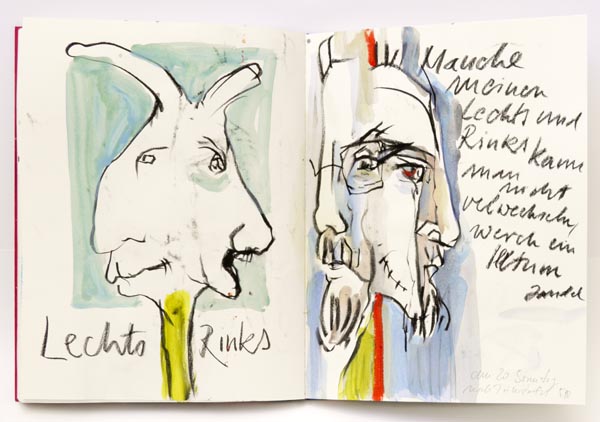 Lechts Rinks
Manche
meinen
Lechts und
Rinks kann
man
nicht
velwechseln,
werch ein
Illtum
Jandl